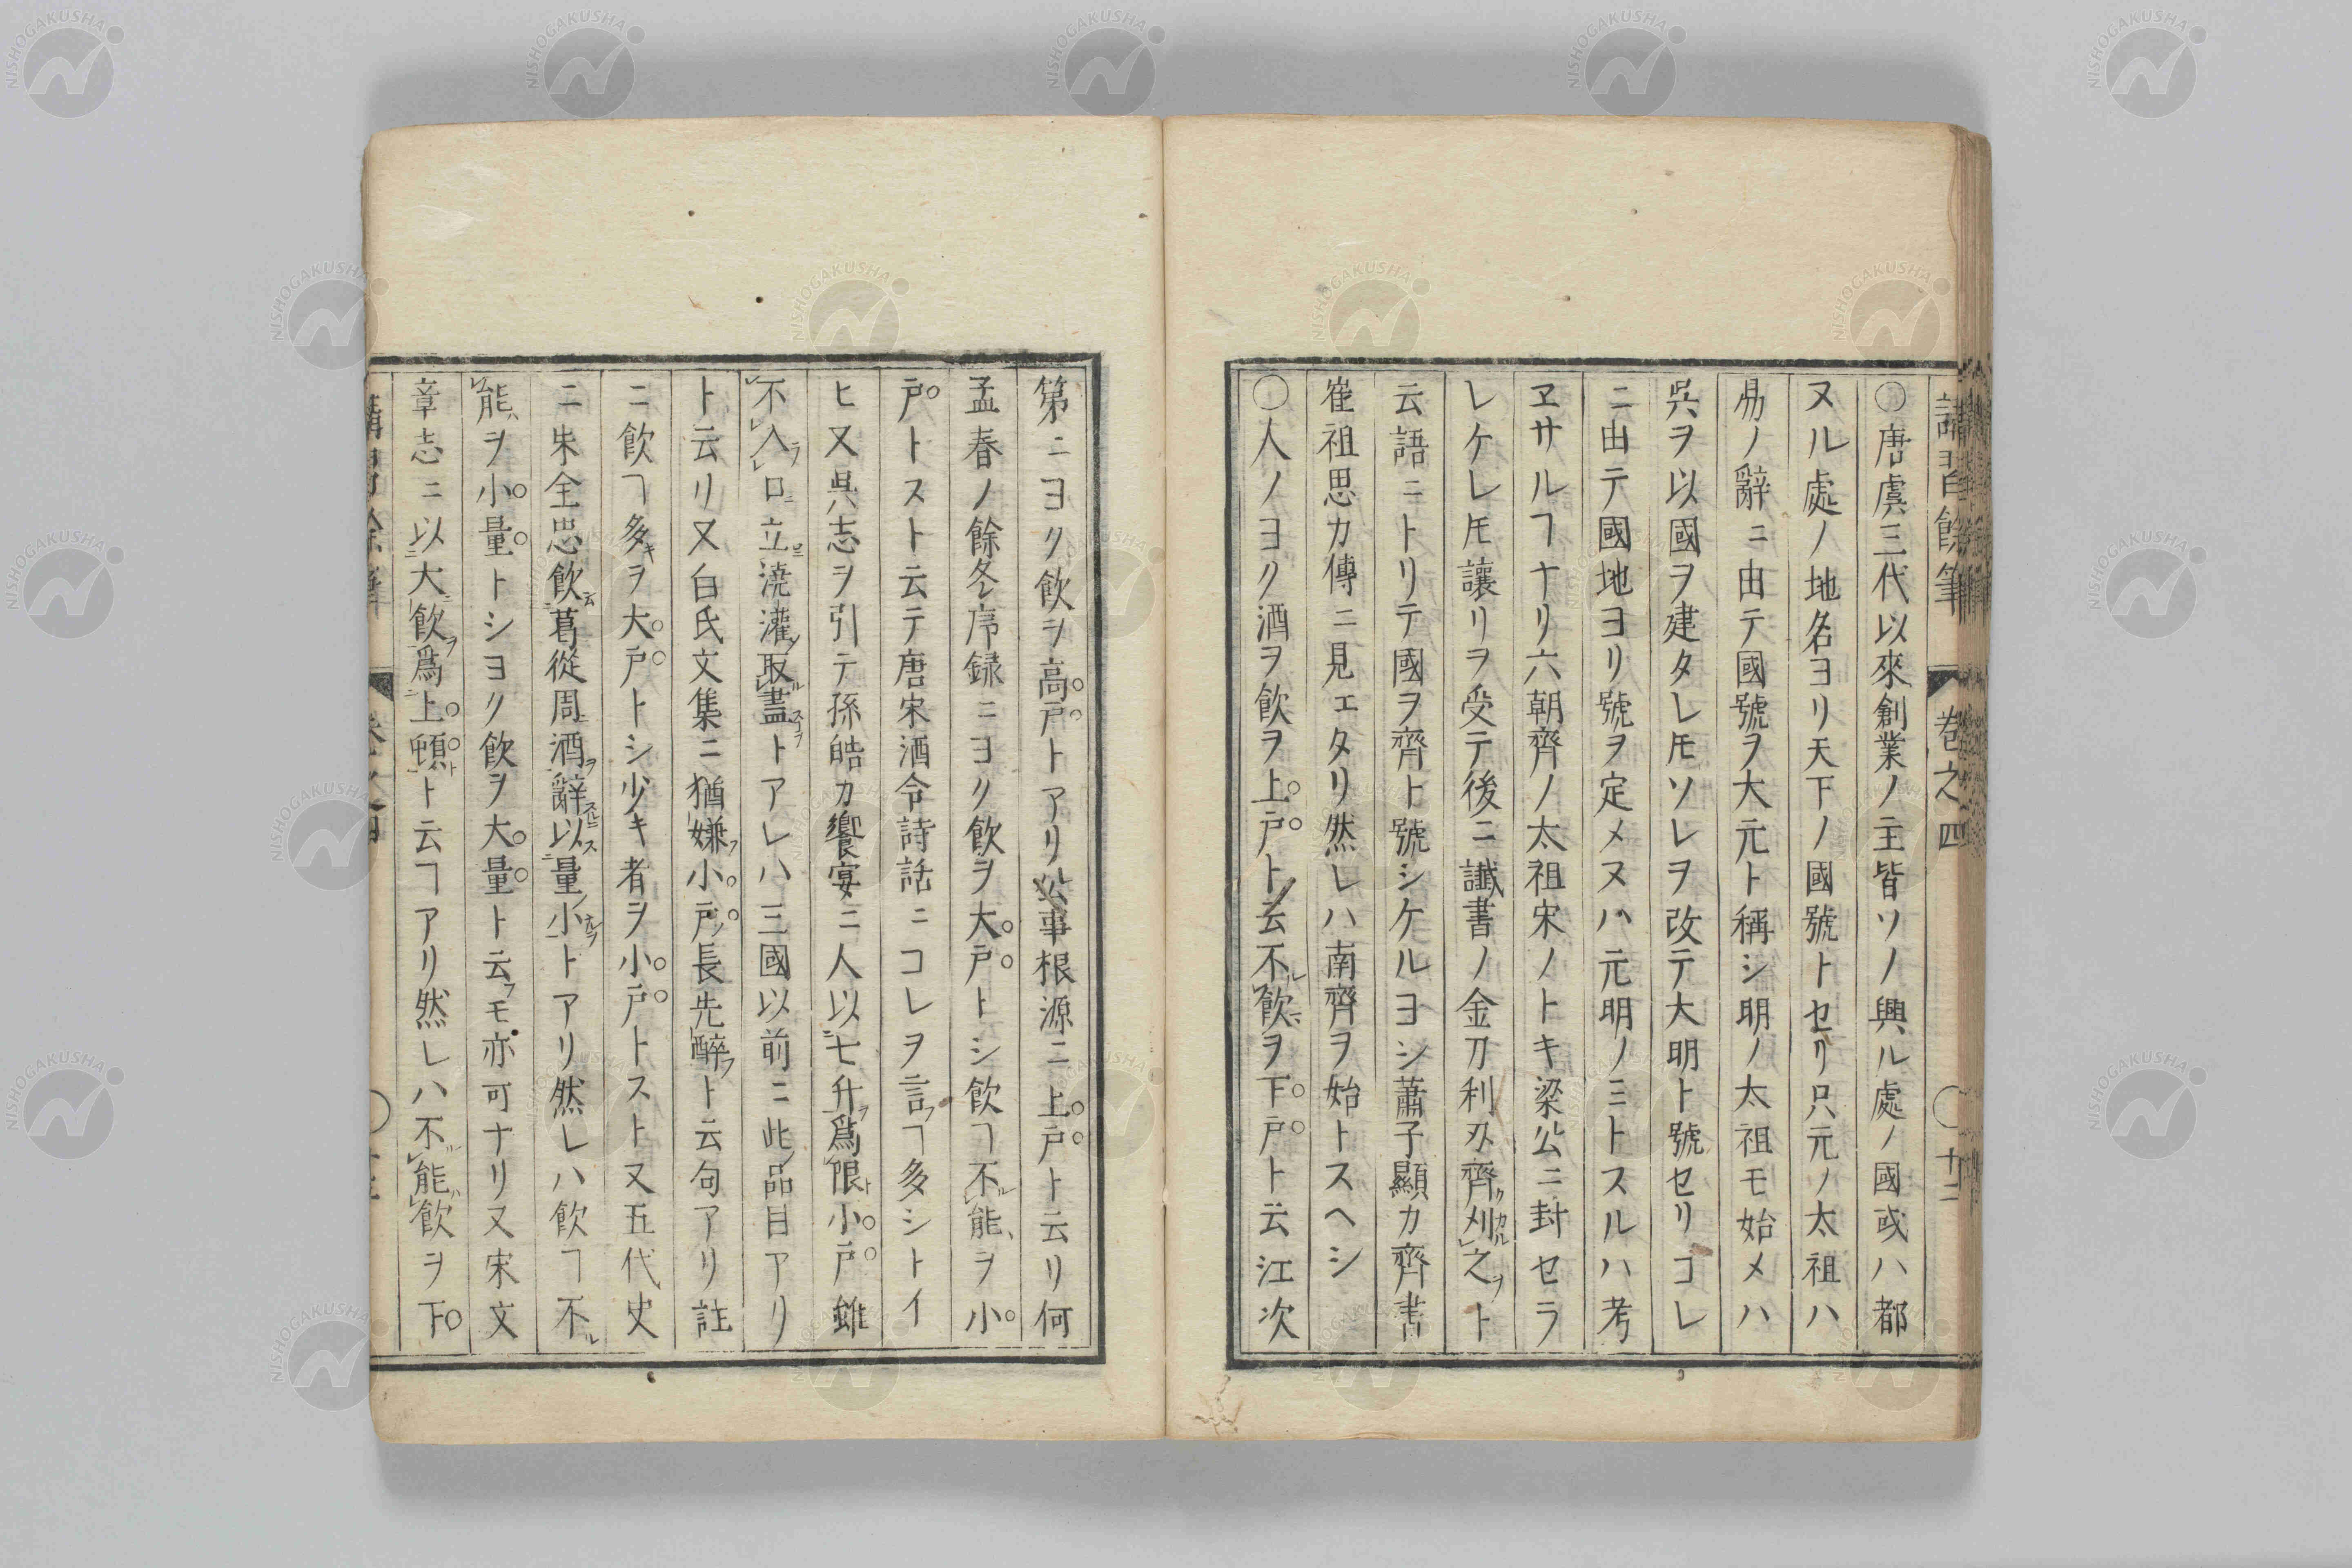 講習餘筆 巻之四 〇十二
〇唐虞三代以來創業ノ主皆ソノ興ル處ノ國或ハ都
ヌル處ノ地名ヨリ天下ノ國號トセリ只元ノ太祖ハ
易ノ辭ニ由テ國號ヲ大元ト稱シ明ノ太祖モ始メハ
吳ヲ以國ヲ建タレ𪜈ソレヲ改テ大明ト號セリコレ
ニ由テ國地ヨリ號ヲ定メヌハ元明ノミトスルハ考
ヱサルヿナリ六朝齊ノ太祖宋ノトキ梁公ニ封セラ
レケレ𪜈讓リヲ受テ後ニ讖書ノ金刀利刄齊刈之ト
云語ニトリテ國ヲ齊ト號シケルヨシ蕭子顯カ齊書
崔祖思カ傳ニ見エタリ然レハ南齊ヲ始トスヘシ
〇人ノヨク酒ヲ飲ヲ上戸ト云不飲ヲ下戸ト云江次
第ニヨク飲ヲ高戸トアリ公事根源ニ上戸ト云リ何
孟春ノ餘冬序録ニヨク飲ヲ大戸トシ飲ヿ不能ヲ小
戸トスト云テ唐宋酒令詩話ニコレヲ言ヿ多シトイ
ヒ又吳志ヲ引テ孫皓カ饗宴ニ人以七升爲限小戸雖
不入口立澆灌取盡トアレハ三國以前ニ此品目アリ
ト云リ又白氏文集ニ猶嫌小戸長先醉ト云句アリ註
ニ飲ヿ多キヲ大戸トシ少キ者ヲ小戸トスト又五代史
ニ朱全忠飲葛從周酒辭以量小トアリ然レハ飲ヿ不
能ヲ小量トシヨク飲ヲ大量ト云モ亦可ナリ又宋文
章志ニ以大飲爲上頓ト云ヿアリ然レハ不能飲ヲ下
NISHOGAKUSHA